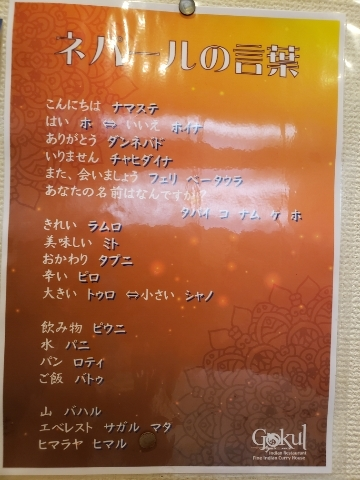 ネパールの言葉
こんにちは ナマステ
はい ホ ⇔ いいえ ホイナ
ありがとう ダンネバド
いりません チャヒダイナ
また、会いましょう フェリ ベータウラ
あなたの名前はなんですか？
タパイ コ ナム ケ ホ
きれい ラムロ
美味しい ミト
おかわり タプニ
辛い ピロ
大きい トゥロ ⇔ 小さい シャノ
飲み物 ピウニ
水 パニ
パン ロティ
ご飯 バトゥ
山 パハル
エベレスト サガル マタ
ヒマラヤ ヒマル
Gokul
Indian Restaurant
Fine Indian Curry House